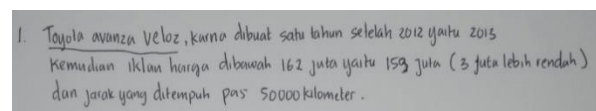 1. Toyota avanza Veloz, karna dibuat satu tahun setelah 2012 yaitu 2013
Kemudian iklan harga dibawah 162 juta yaitu 159 juta (3 juta lebih rendah)
dan jarak yang ditempuh pas 50000 kilometer.